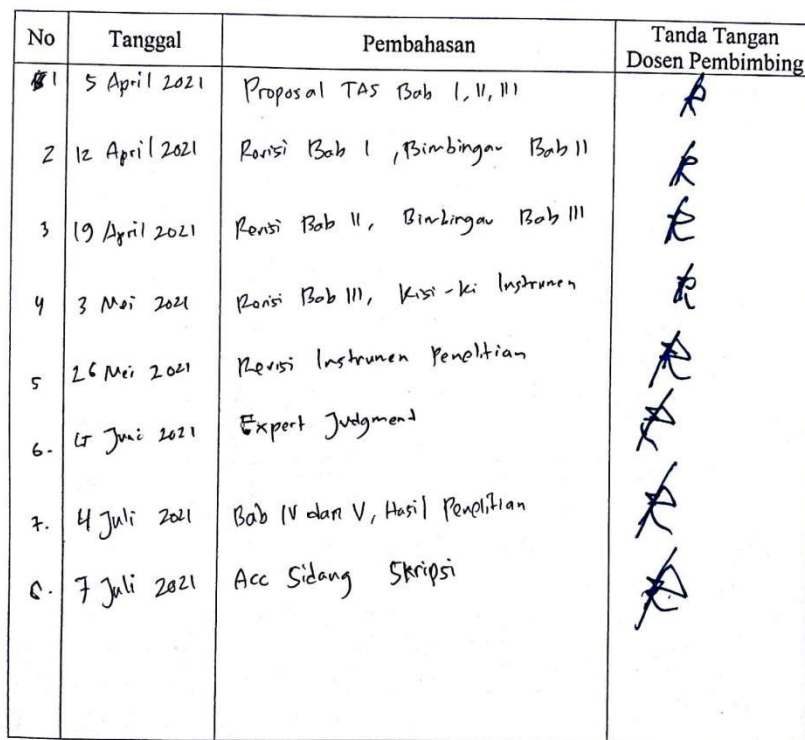 No Tanggal Pembahasan Tanda Tangan
Dosen Pembimbing
1 5 April 2021 Proposal TAS Bab I, II, III
2 12 April 2021 Revisi Bab I, Bimbingan Bab II
3 19 April 2021 Revisi Bab II, Bimbingan Bab III
4 3 Mei 2021 Revisi Bab III, Kisi-ki Instrumen
5 26 Mei 2021 Revisi Instrumen Penelitian
6. Juni 2021 Expert Judgment
7. 4 Juli 2021 Bab IV dan V, Hasil Penelitian
8. 7 Juli 2021 Acc Sidang Skripsi